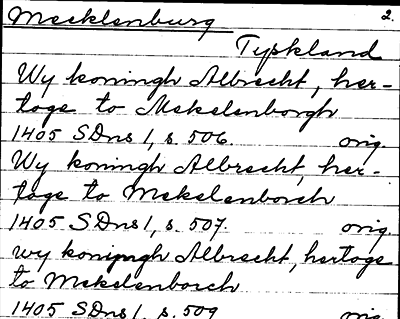 Mecklenburg 2.
Tyskland
Wy koningh Albrecht, her-
toge to Mekelenborgh
1405 SDns 1, s. 506. orig.
Wy koningh Albrecht, her-
toge to Mekelenborch
1405 SDns 1, s. 507. orig
wy koningh Albrecht, hertoge
to Mekelenborch
1405 SDns 1, s. 509 orig